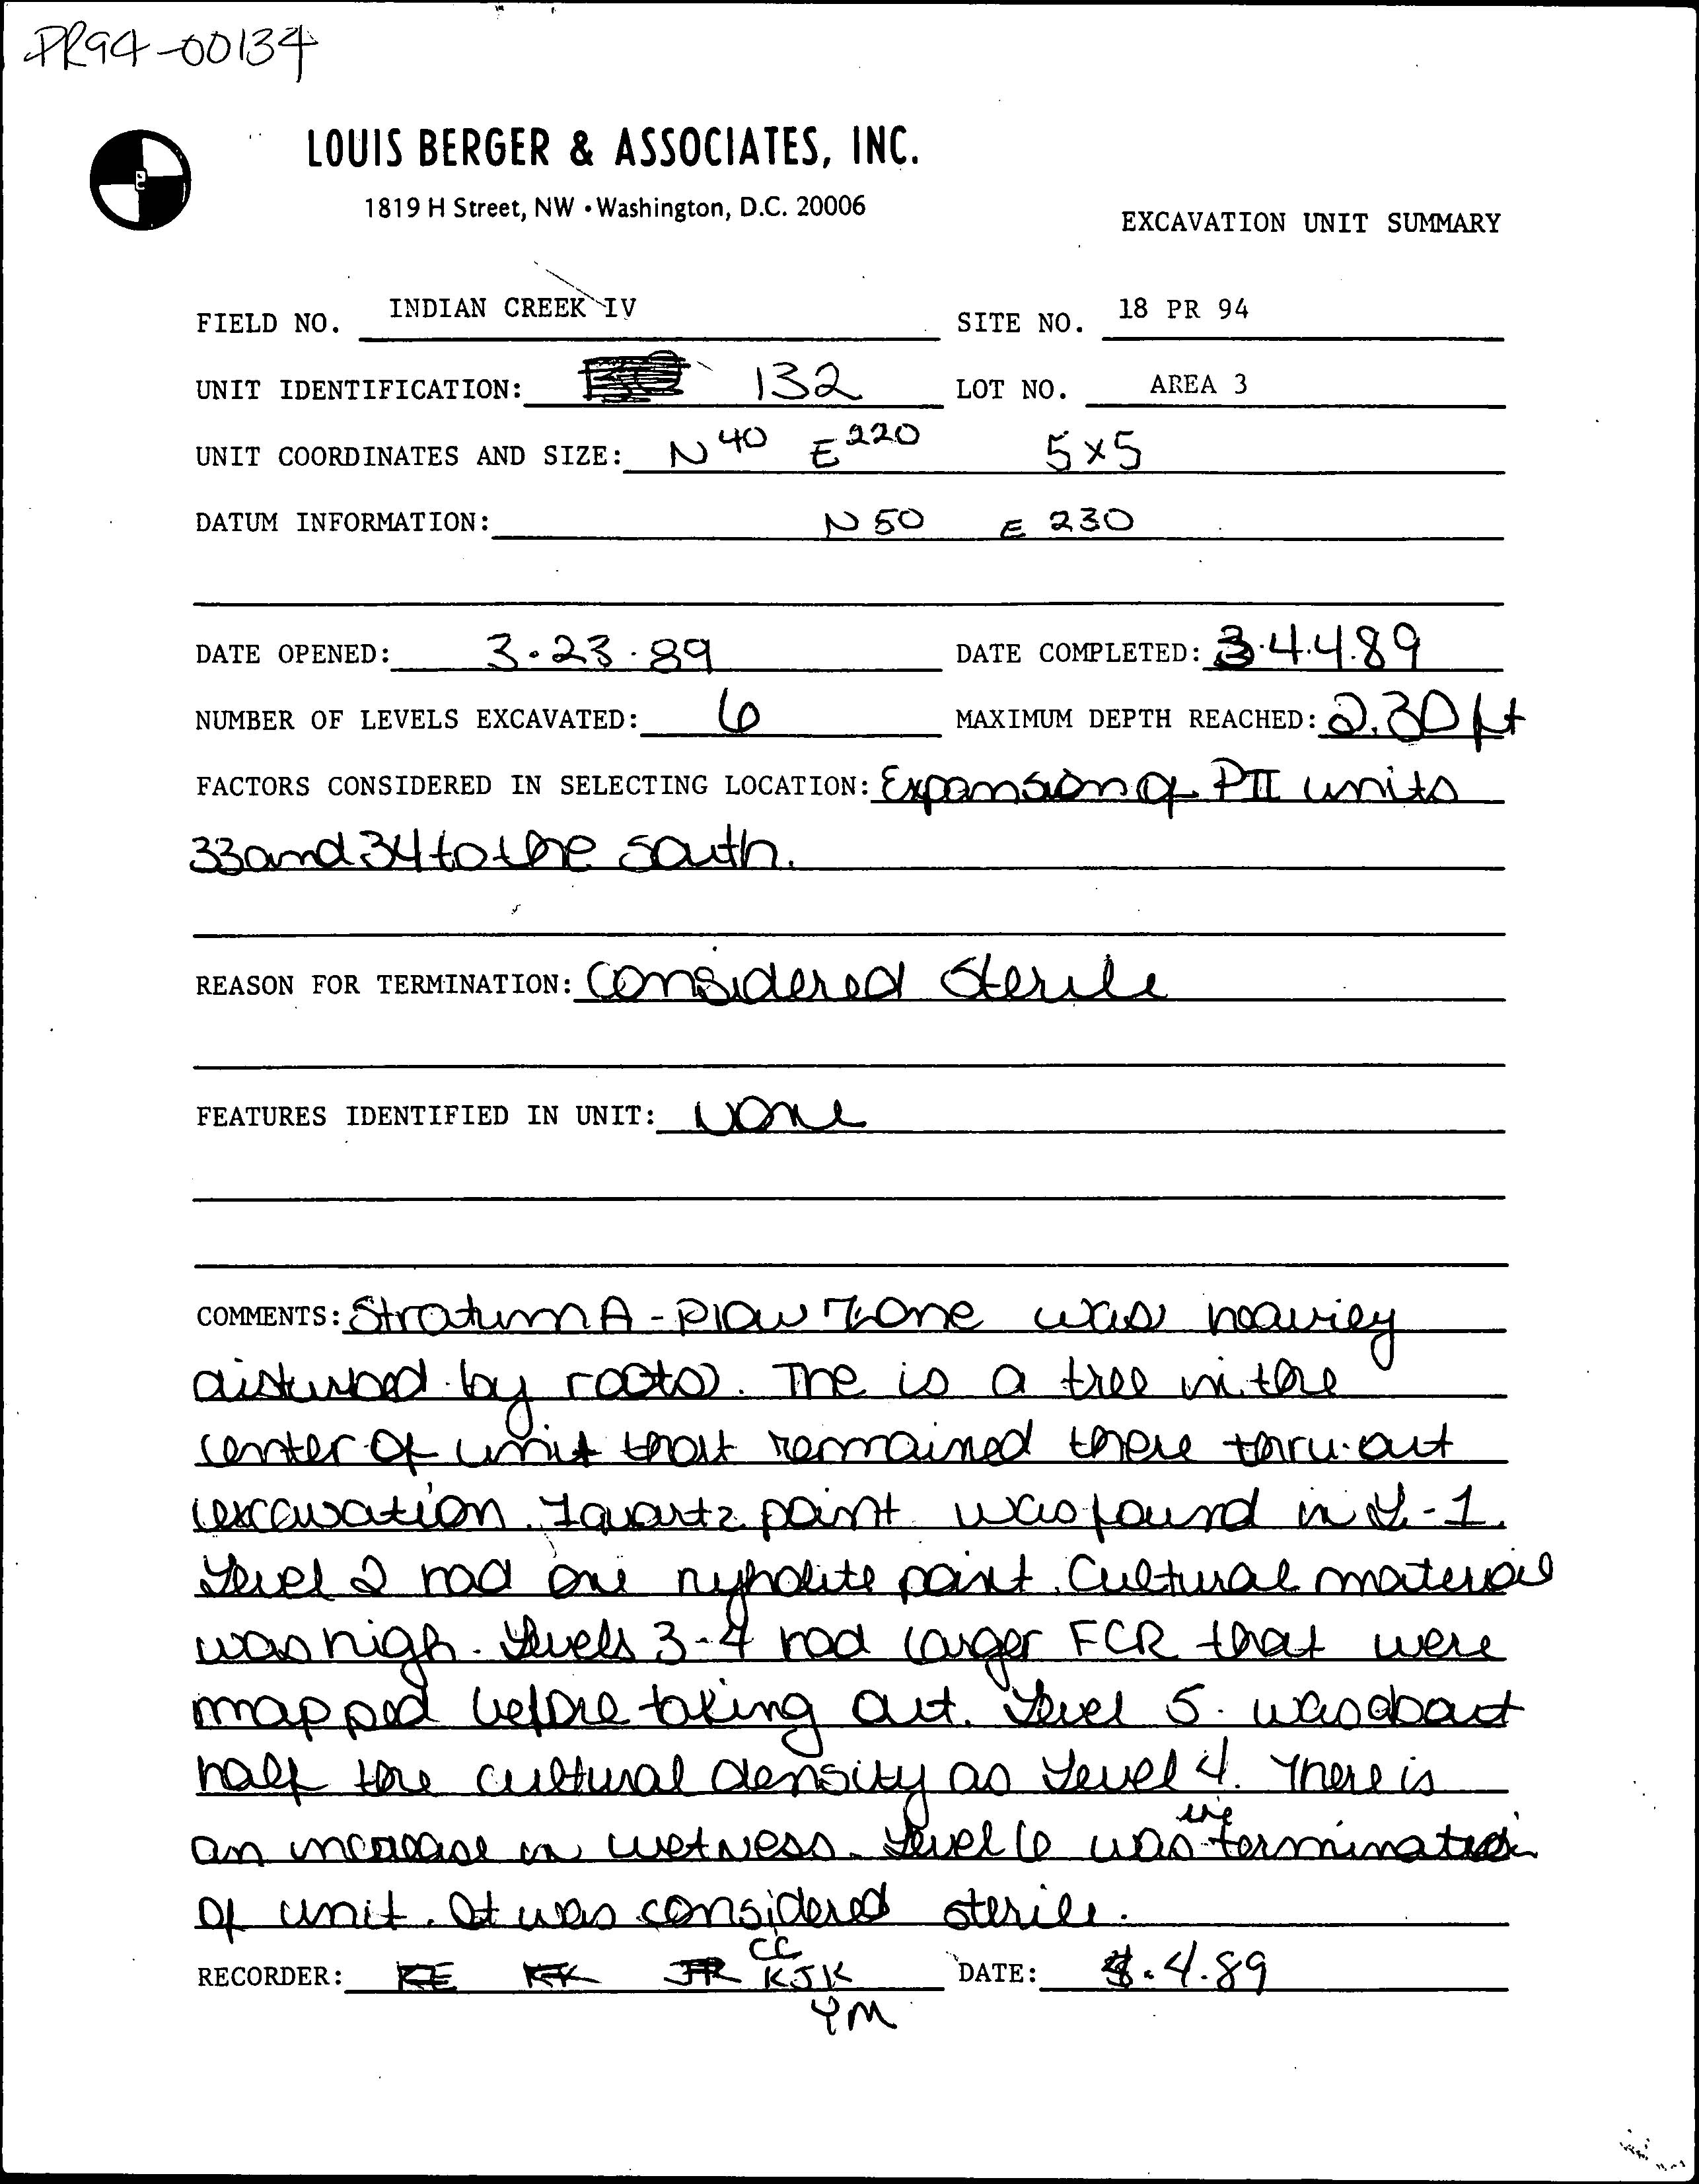 PR94-00134
LOUIS BERGER & ASSOCIATES, INC.
1819 H Street, NW • Washington, D.C. 20006
EXCAVATION UNIT SUMMARY
FIELD NO. INDIAN CREEK IV SITE NO. 18 PR 94
UNIT IDENTIFICATION: 132 LOT NO. AREA 3
UNIT COORDINATES AND SIZE: N 40 E 220 5x5
DATUM INFORMATION: N 50 E 230
DATE OPENED: 3.23.89 DATE COMPLETED: 4.4.89
NUMBER OF LEVELS EXCAVATED: 6 MAXIMUM DEPTH REACHED: 2.30 ft
FACTORS CONSIDERED IN SELECTING LOCATION: Expansion of PII units
33 and 34 to the south.
REASON FOR TERMINATION: Considered Sterile
FEATURES IDENTIFIED IN UNIT: None
COMMENTS: Stratum A - Plow Zone was heaviley
disturbed by roots. The is a tree in the
center of unit that remained there thru-out
excavation. 1 quartz point was found in L-1.
Level 2 had one ryholite point. Cultural material
was high. Levels 3-4 had larger FCR that were
mapped before taking out. Level 5. was about
half the cultural density as Level 4. There is
an increase in wetness. Level 6 was the termination
of unit. It was considered sterile.
RECORDER: KE KK JR CC KJK DATE: 4.89
YM